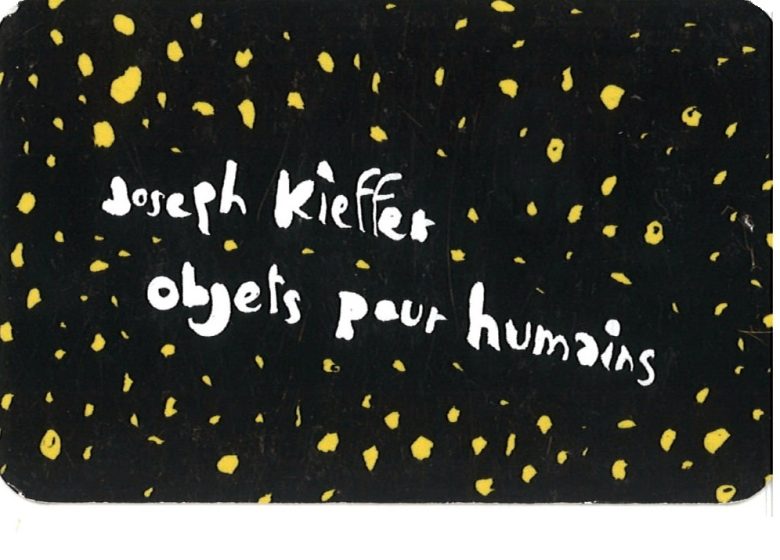 Joseph Kieffer
objets pour humains